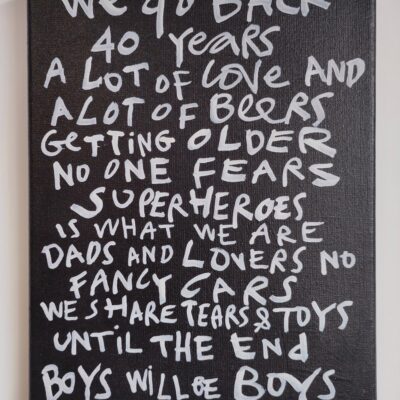 We go BACK
40 years
A LOT OF Love AND
A LOT OF BeeRS
GeTTING OLDER
NO ONE FEARS
SUPERHEROES
IS WHAT WE ARE
DADS AND LOVERS NO
FANCY CARS
WE SHARE TEARS & TOYS
UNTIL THE END
BOYS WILL BE BOYS